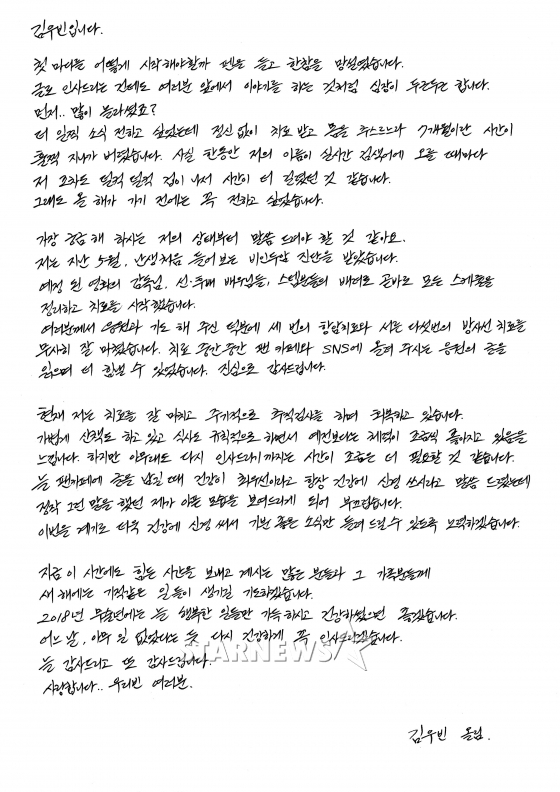 김우빈입니다.
첫 마디를 어떻게 시작해야할까 펜을 들고 한참을 망설였습니다.
글로 인사드리는 건데도 여러분 앞에서 이야기를 하는 것처럼 심장이 두근두근 합니다.
먼저.. 많이 놀라셨죠?
더 일찍 소식 전하고 싶었는데 정신없이 치료 받고 몸을 추스르느라 7개월이란 시간이
훌쩍 지나가 버렸습니다. 사실 한동안 저의 이름이 실시간 검색어에 오를 때마다
저 조차도 덜컥 덜컥 겁이 나서 시간이 더 길었던 것 같습니다.
그래도 올 해가 가기 전에는 꼭 전하고 싶었습니다.
가장 궁금해 하시는 저의 상태부터 말씀 드려야 할 것 같아요.
저는 지난 5월, 난생처음 들어보는 비인두암 진단을 받았습니다.
예정 된 영화의 감독님, 선·후배 배우님들, 스텝분들의 배려로 곧바로 모든 스케줄을
정리하고 치료를 시작했습니다.
여러분께서 응원과 기도 해 주신 덕분에 세 번의 항암치료와 서른 다섯번의 방사선 치료를
무사히 잘 마쳤습니다. 치료 중간중간 팬 카페와 SNS에 올려 주시는 응원의 글을
읽으며 더 힘낼 수 있었습니다. 진심으로 감사드립니다.
현재 저는 치료를 잘 마치고 주기적으로 추적검사를 하며 회복하고 있습니다.
가볍게 산책도 하고 있고 식사도 규칙적으로 하면서 예전보다는 체력이 조금씩 좋아지고 있음을
느낍니다. 하지만 아무래도 다시 인사드리기까지는 시간이 조금은 더 필요할 것 같습니다.
늘 팬카페에 글을 남길 때 건강이 최우선이라고 항상 건강에 신경 쓰시라고 말씀 드렸는데
정작 그런 말을 했던 제가 아픈 모습을 보여드리게 되어 부끄럽습니다.
이번을 계기로 더욱 건강에 신경 써서 기분 좋은 소식만 들려 드릴 수 있도록 노력하겠습니다.
지금 이 시간에도 힘든 시간을 보내고 계시는 많은 분들과 그 가족분들께
새 해에는 기적같은 일들이 생기길 기도하겠습니다.
2018년 무술년에는 늘 행복한 일들만 가득하시고 건강하셨으면 좋겠습니다.
어느 날, 아무 일 없었다는 듯 다시 건강하게 꼭 인사드리겠습니다.
STARNEWS
늘 감사드리고 또 감사드립니다.
사랑합니다.. 우리빈 여러분.
김우빈 올림.